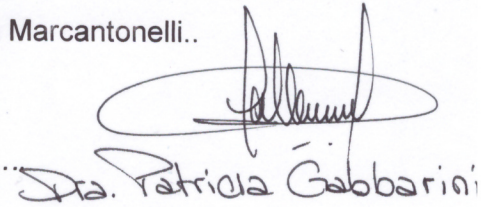 Marcantonelli..
Dra. Patricia Gabbarini